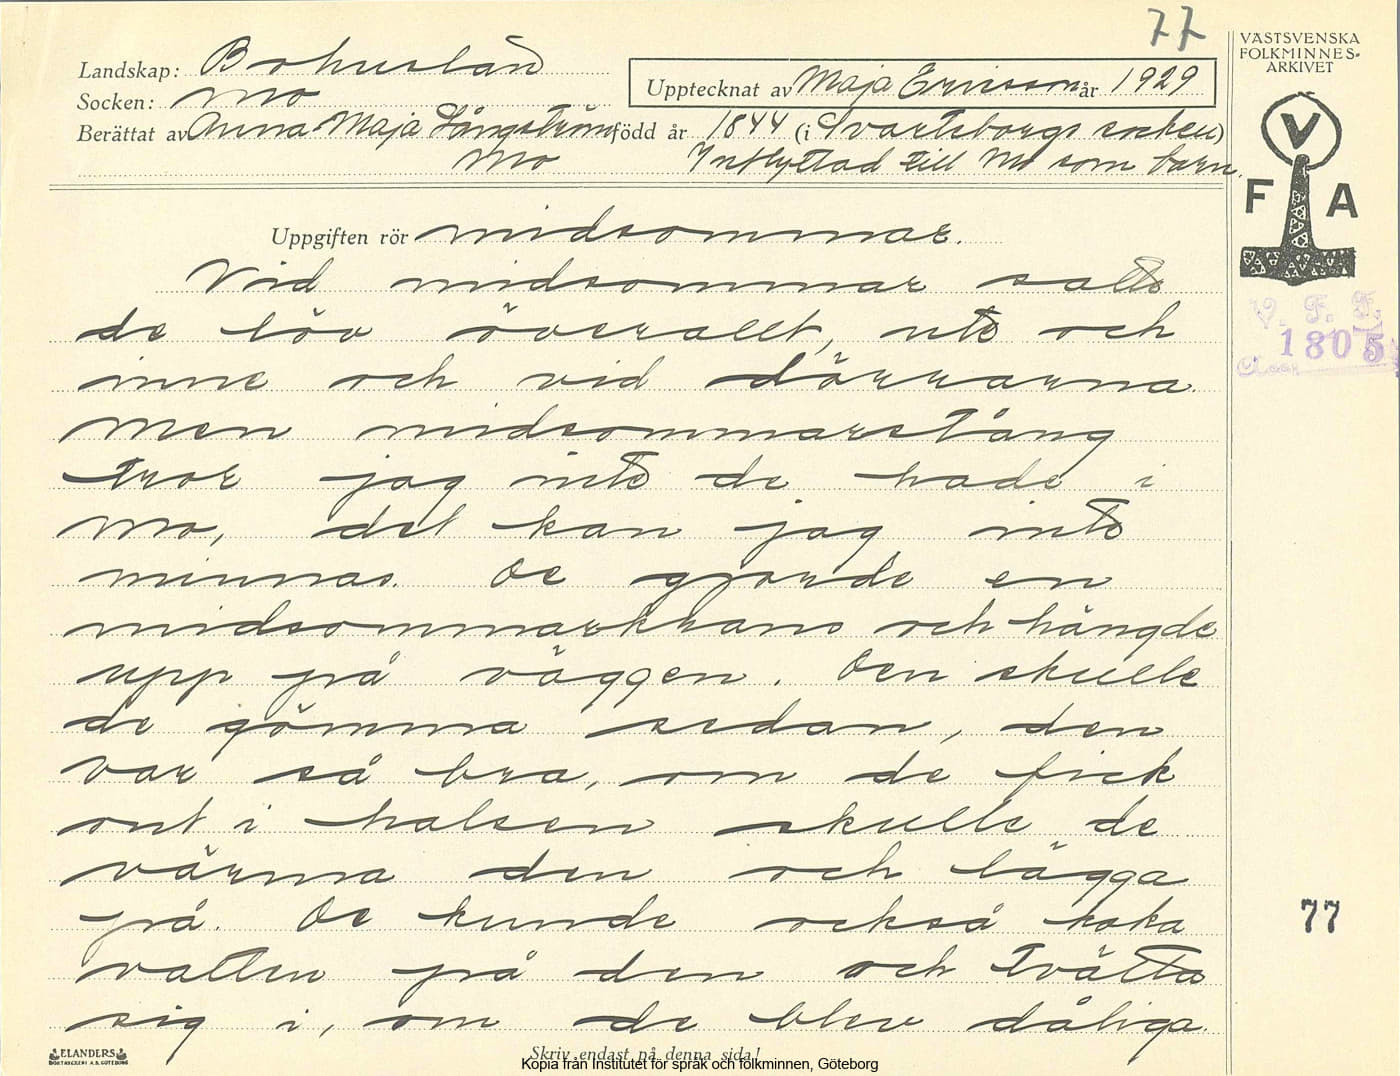 77
VÄSTSVENSKA
FOLKMINNES-
ARKIVET
Landskap: Bohuslän
Upptecknat av Maja Ericsson år 1929
Socken: Mo
Berättat av Anna Maja Ljungström född år 1844 (i Svarteborgs socken)
Mo Inflyttad till Mo som barn.
V
F A
Uppgiften rör midsommar.
Vid midsommar satte
de löv överallt, ute och
V. F. F.
1805
inne och vid dörrarna.
men midsommarstång
tror jag inte de hade i
Mo, det kan jag inte
minnas. De gjorde en
midsommarkrans och hängde
upp på väggen. Den skulle
de gömma sedan, den
var så bra, om de fick
ont i halsen skulle de
värma den och lägga
på. De kunde också koka
77
vatten på den och tvätta
sig i, om de blev dåliga.
ELANDERS
BOKTRYCKERI A.B. GÖTEBORG
Skriv endast på denna sida!
Kopia från Institutet för språk och folkminnen, Göteborg